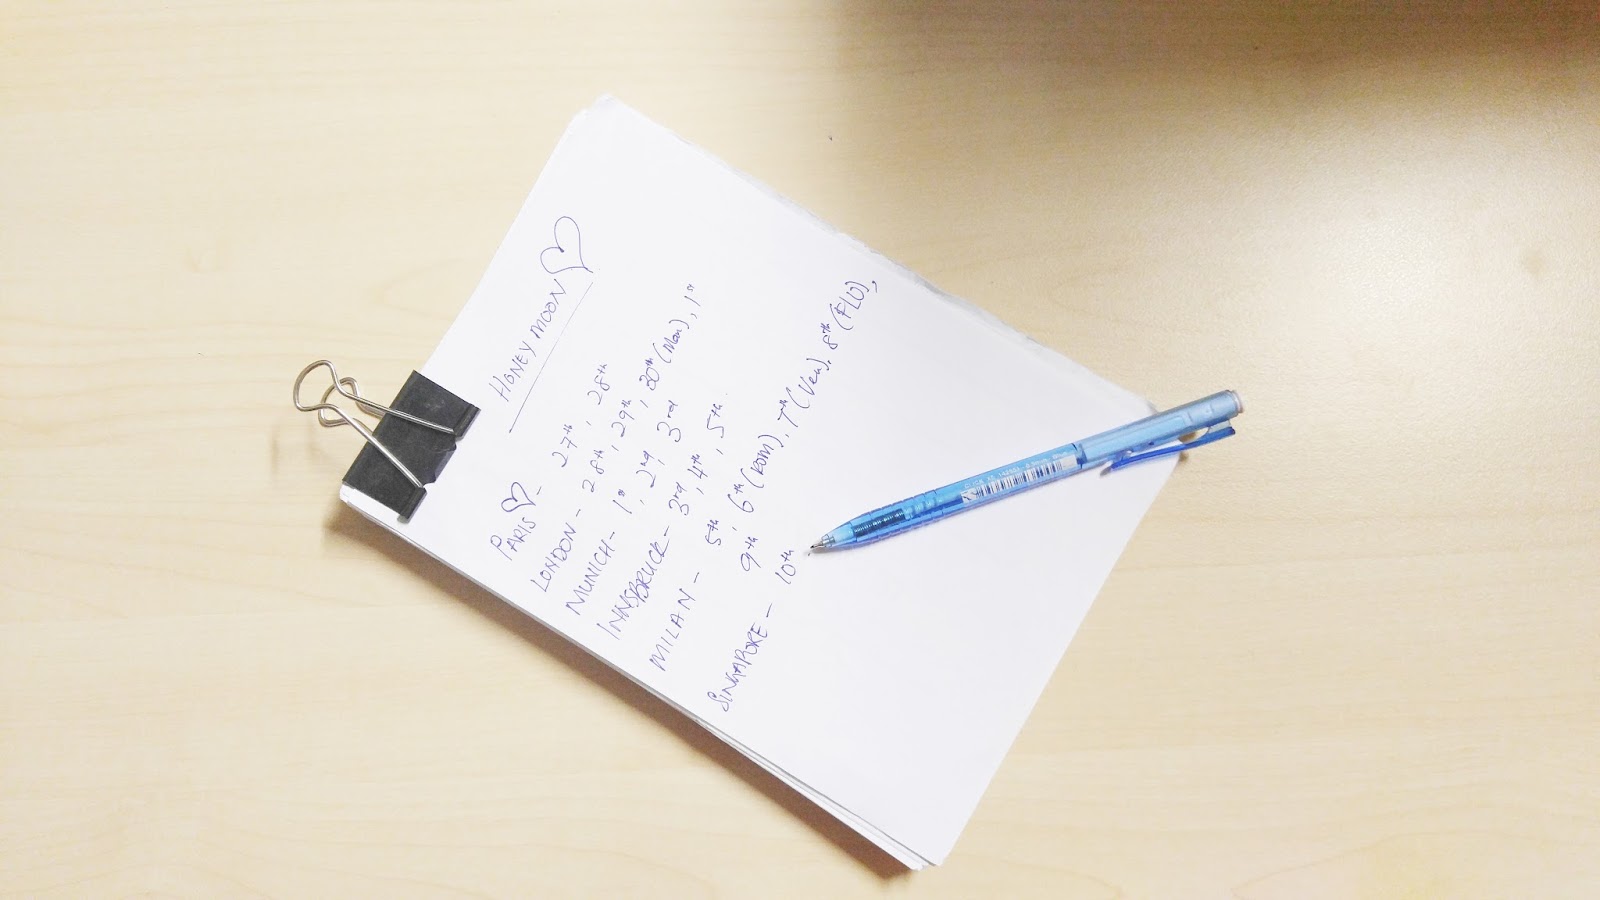 HONEY MOON
PARIS - 27th, 28th
LONDON - 28th, 29th, 30th (Man), 1st
MUNICH - 1st, 2nd 3rd
INNSBRUCK - 3rd, 4th, 5th.
MILAN - 5th, 6th (ROM), 7th (Ven), 8th (FLO),
9th
SINGAPORE - 10th